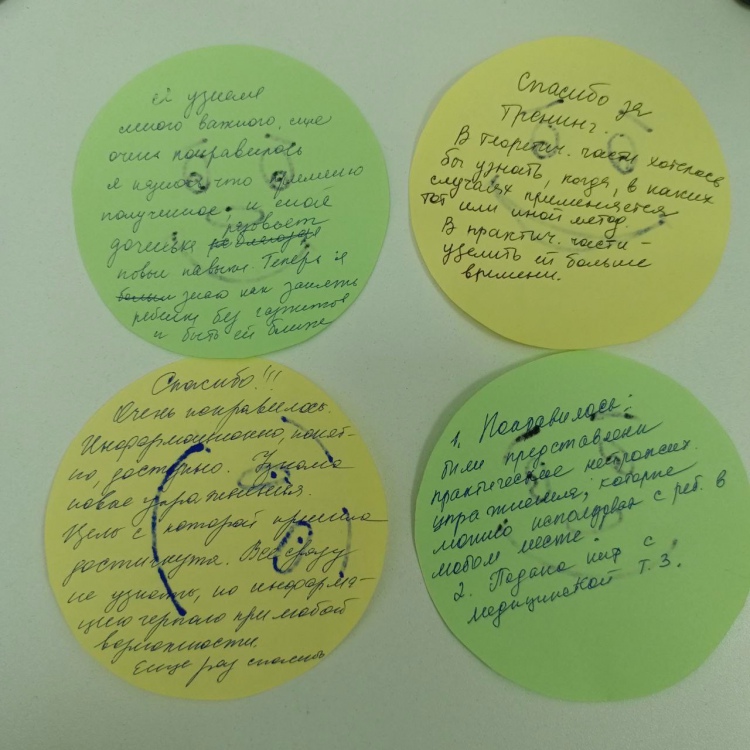 Я узнала
много важного, еще
очень понравилось
я поняла что применю
полученное и с моей
доченька разовьет
новые навыки. Теперь я
знаю как занять
ребенка без гаджетов
и быть ей ближе
Спасибо за
тренинг.
В теоретич. части хотелось
бы узнать, когда, в каких
случаях применяется
тот или иной метод.
В практич. части –
уделить ей больше
времени.
Спасибо!!!
Очень понравилось.
Информационно, понят-
но, доступно. Узнала
новые упражнения.
Цель с которой пришла
достигнута. Все сразу
не узнать, но информа-
цию черпаю при любой
возможности.
Еще раз спасибо
1. Понравилось:
были представлены
практические нейропсих.
упражнения, которые
можно использовать с реб. в
любом месте.
2. Подана инф с
медицинской т.з.